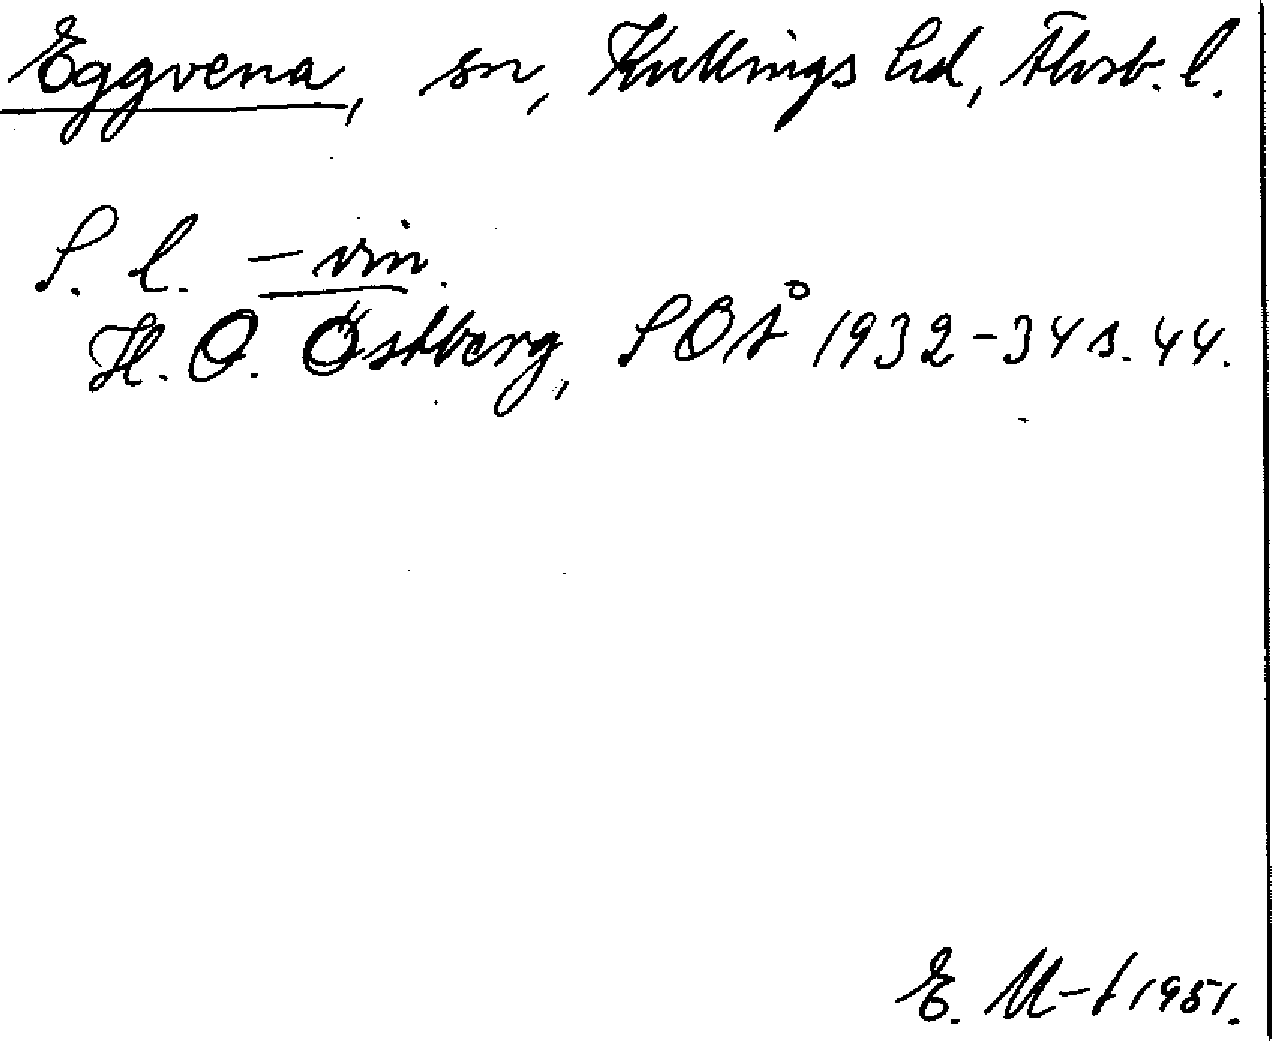 Eggvena, sn, Kullings hd, Älvsb. l.
S. l. - vin.
H. O. Östberg, SOÅ 1932-34 s. 44.
E. M-t 1951.